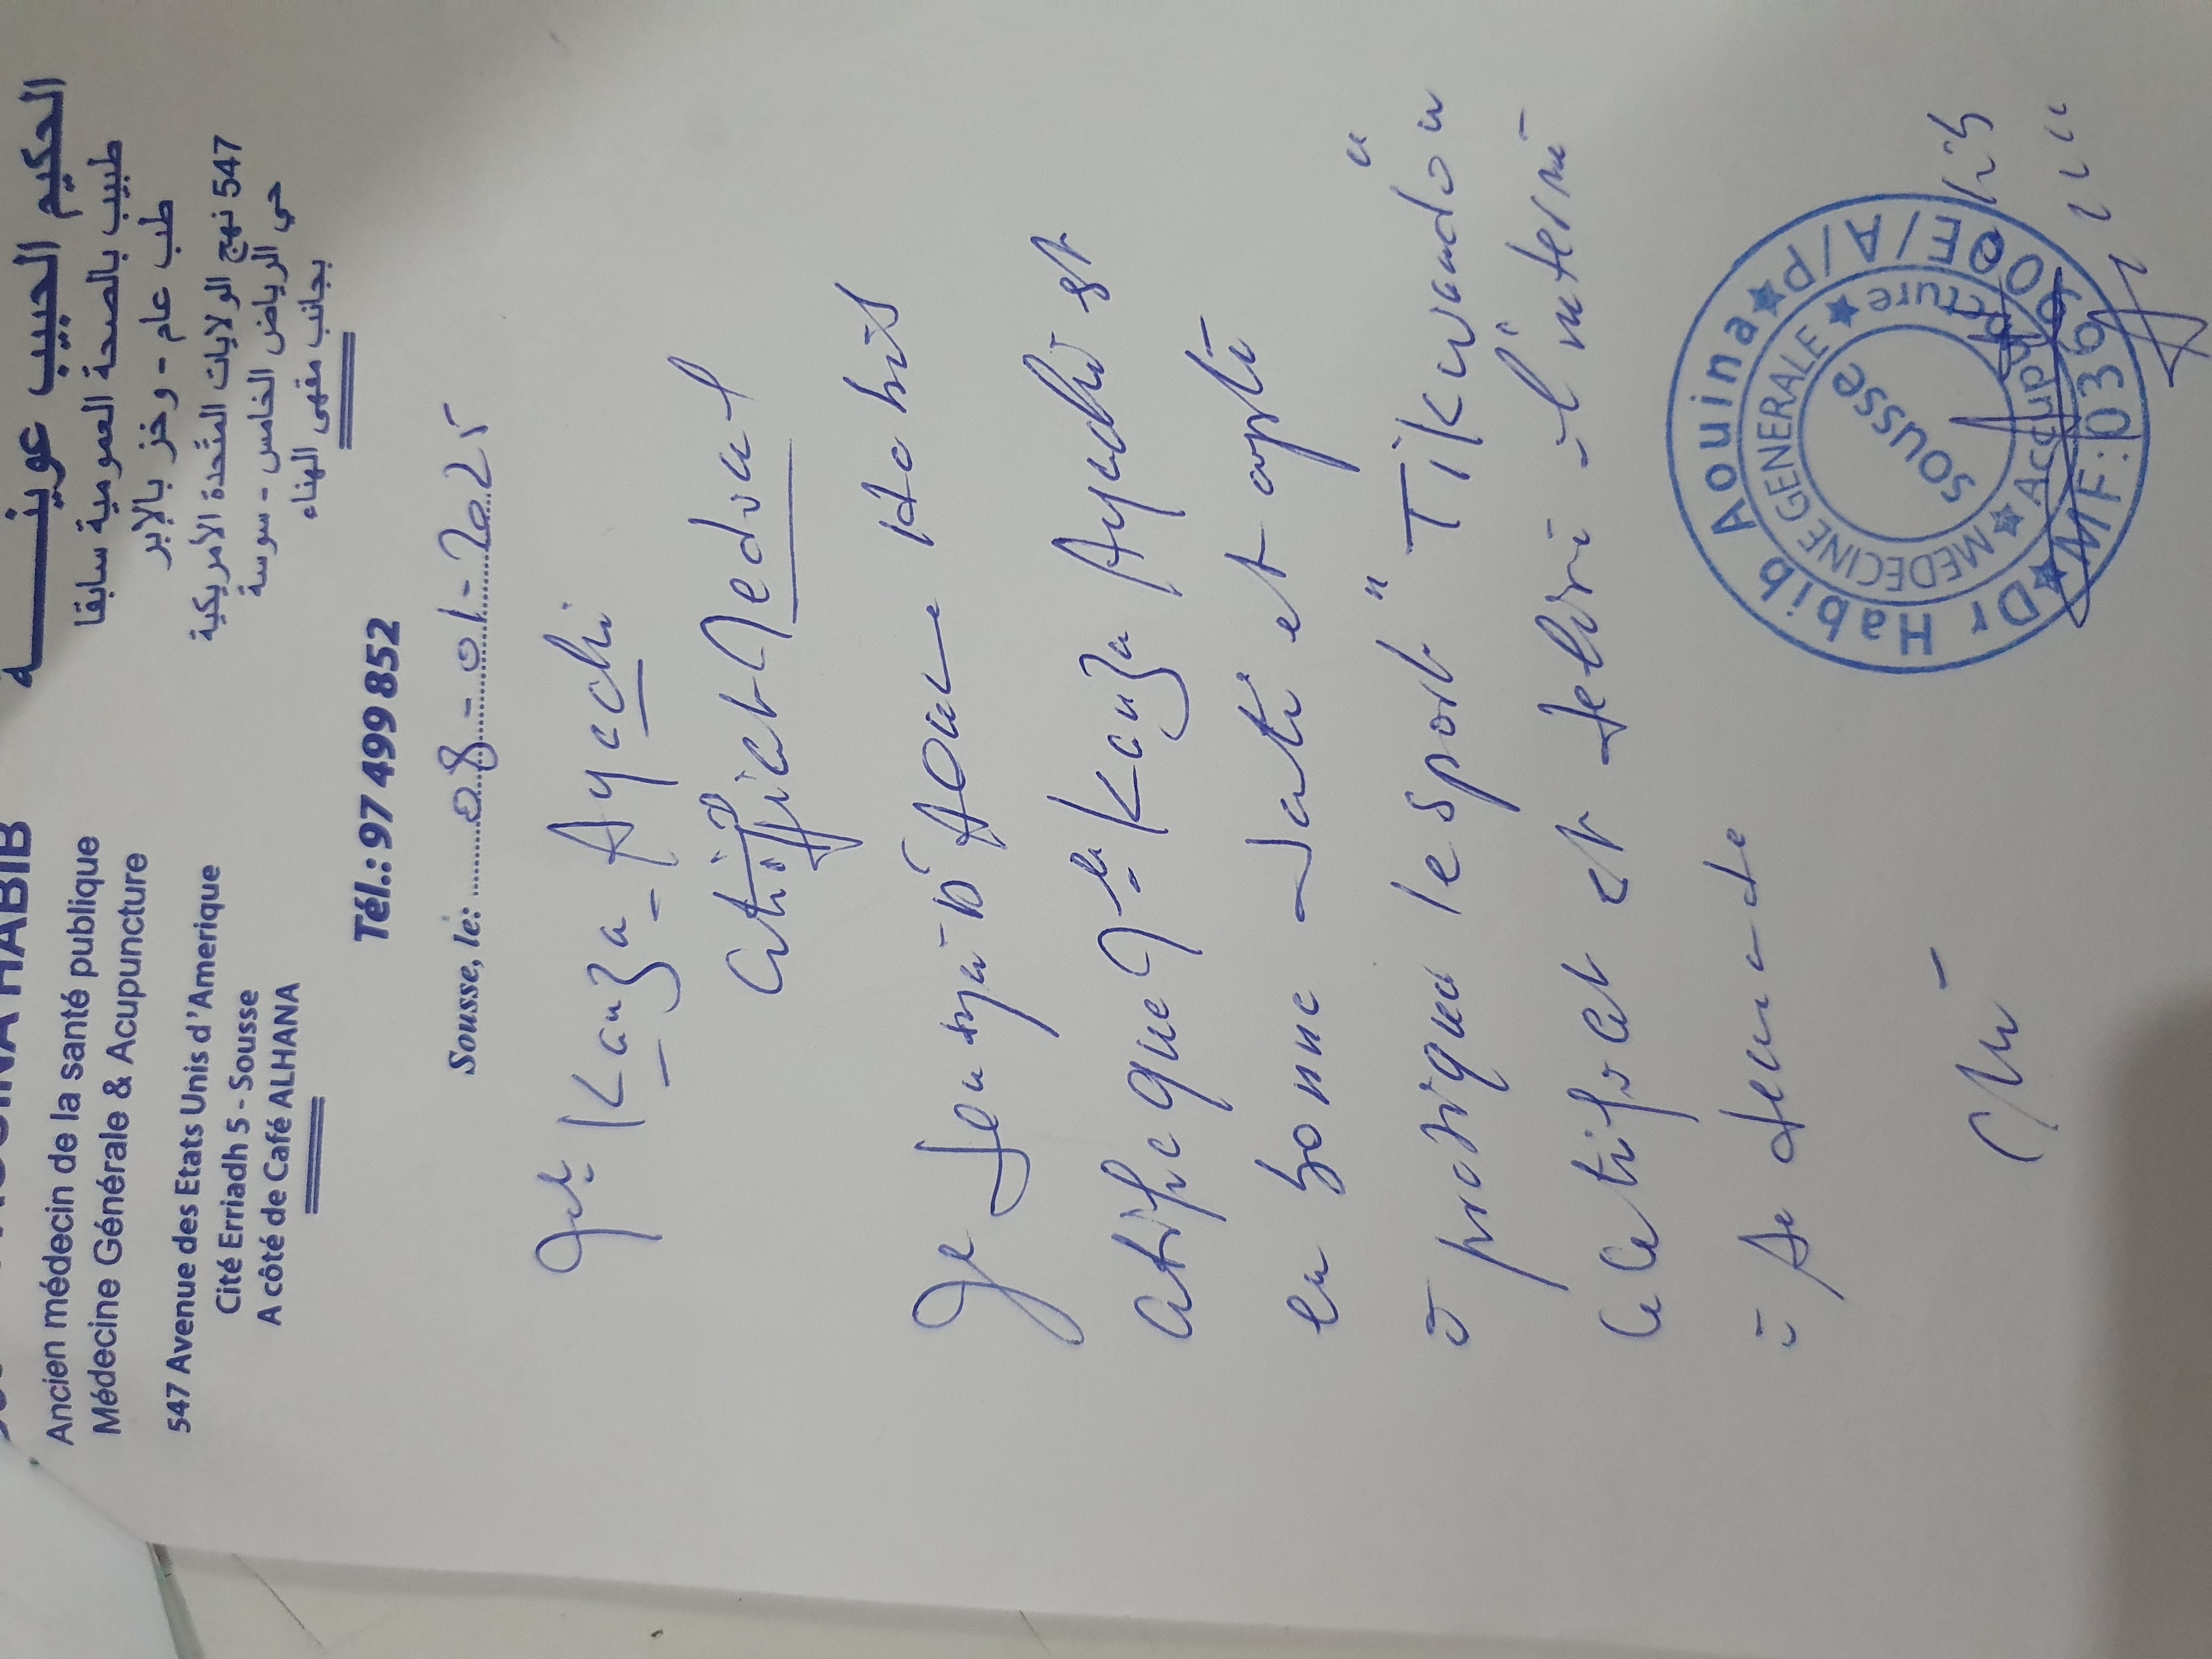 HABIB
Ancien médecin de la santé publique
Médecine Générale & Acupuncture
547 Avenue des Etats Unis d'Amerique
Cité Erriadh 5 - Sousse
A côté de Café ALHANA
الحكيم الحبيب عوينـــــة
طبيب بالصحة العمومية سابقا
طب عام - وخز بالإبر
547 نهج الولايات المتحدة الأمريكية
حي الرياض الخامس - سوسة
بجانب مقهى الهناء
Tél.: 97 499 852
Sousse, le: 08-01-2025
Kanza Ayachi
Certificat Médical
Je soussigné Dr Aouina Habib
certifie que Mlle Kanza Ayachi est
en bonne santé et apte
à pratiquer le sport " Tikwandou "
Ce certificat est délivré à l'intéressé
à sa demande
Dr Habib Aouina
MEDECINE GENERALE
Acupuncture
SOUSSE
MF:036
E/A/P/A